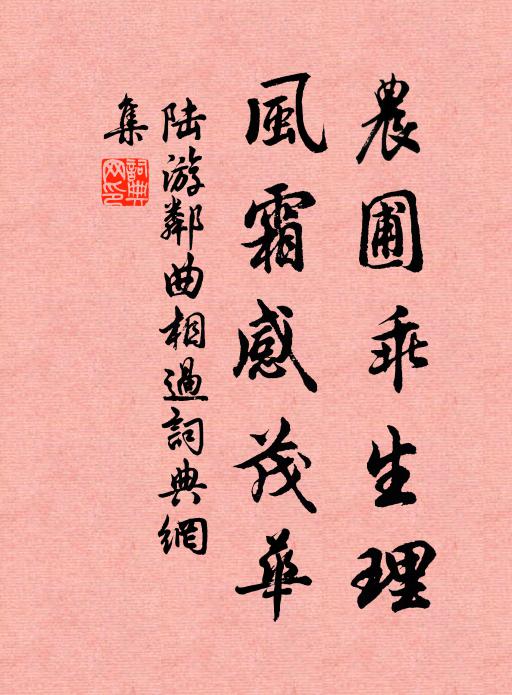 農圃乖生理
風霜感茂華
陸游鄰曲相過詞典網
集
詞典網印